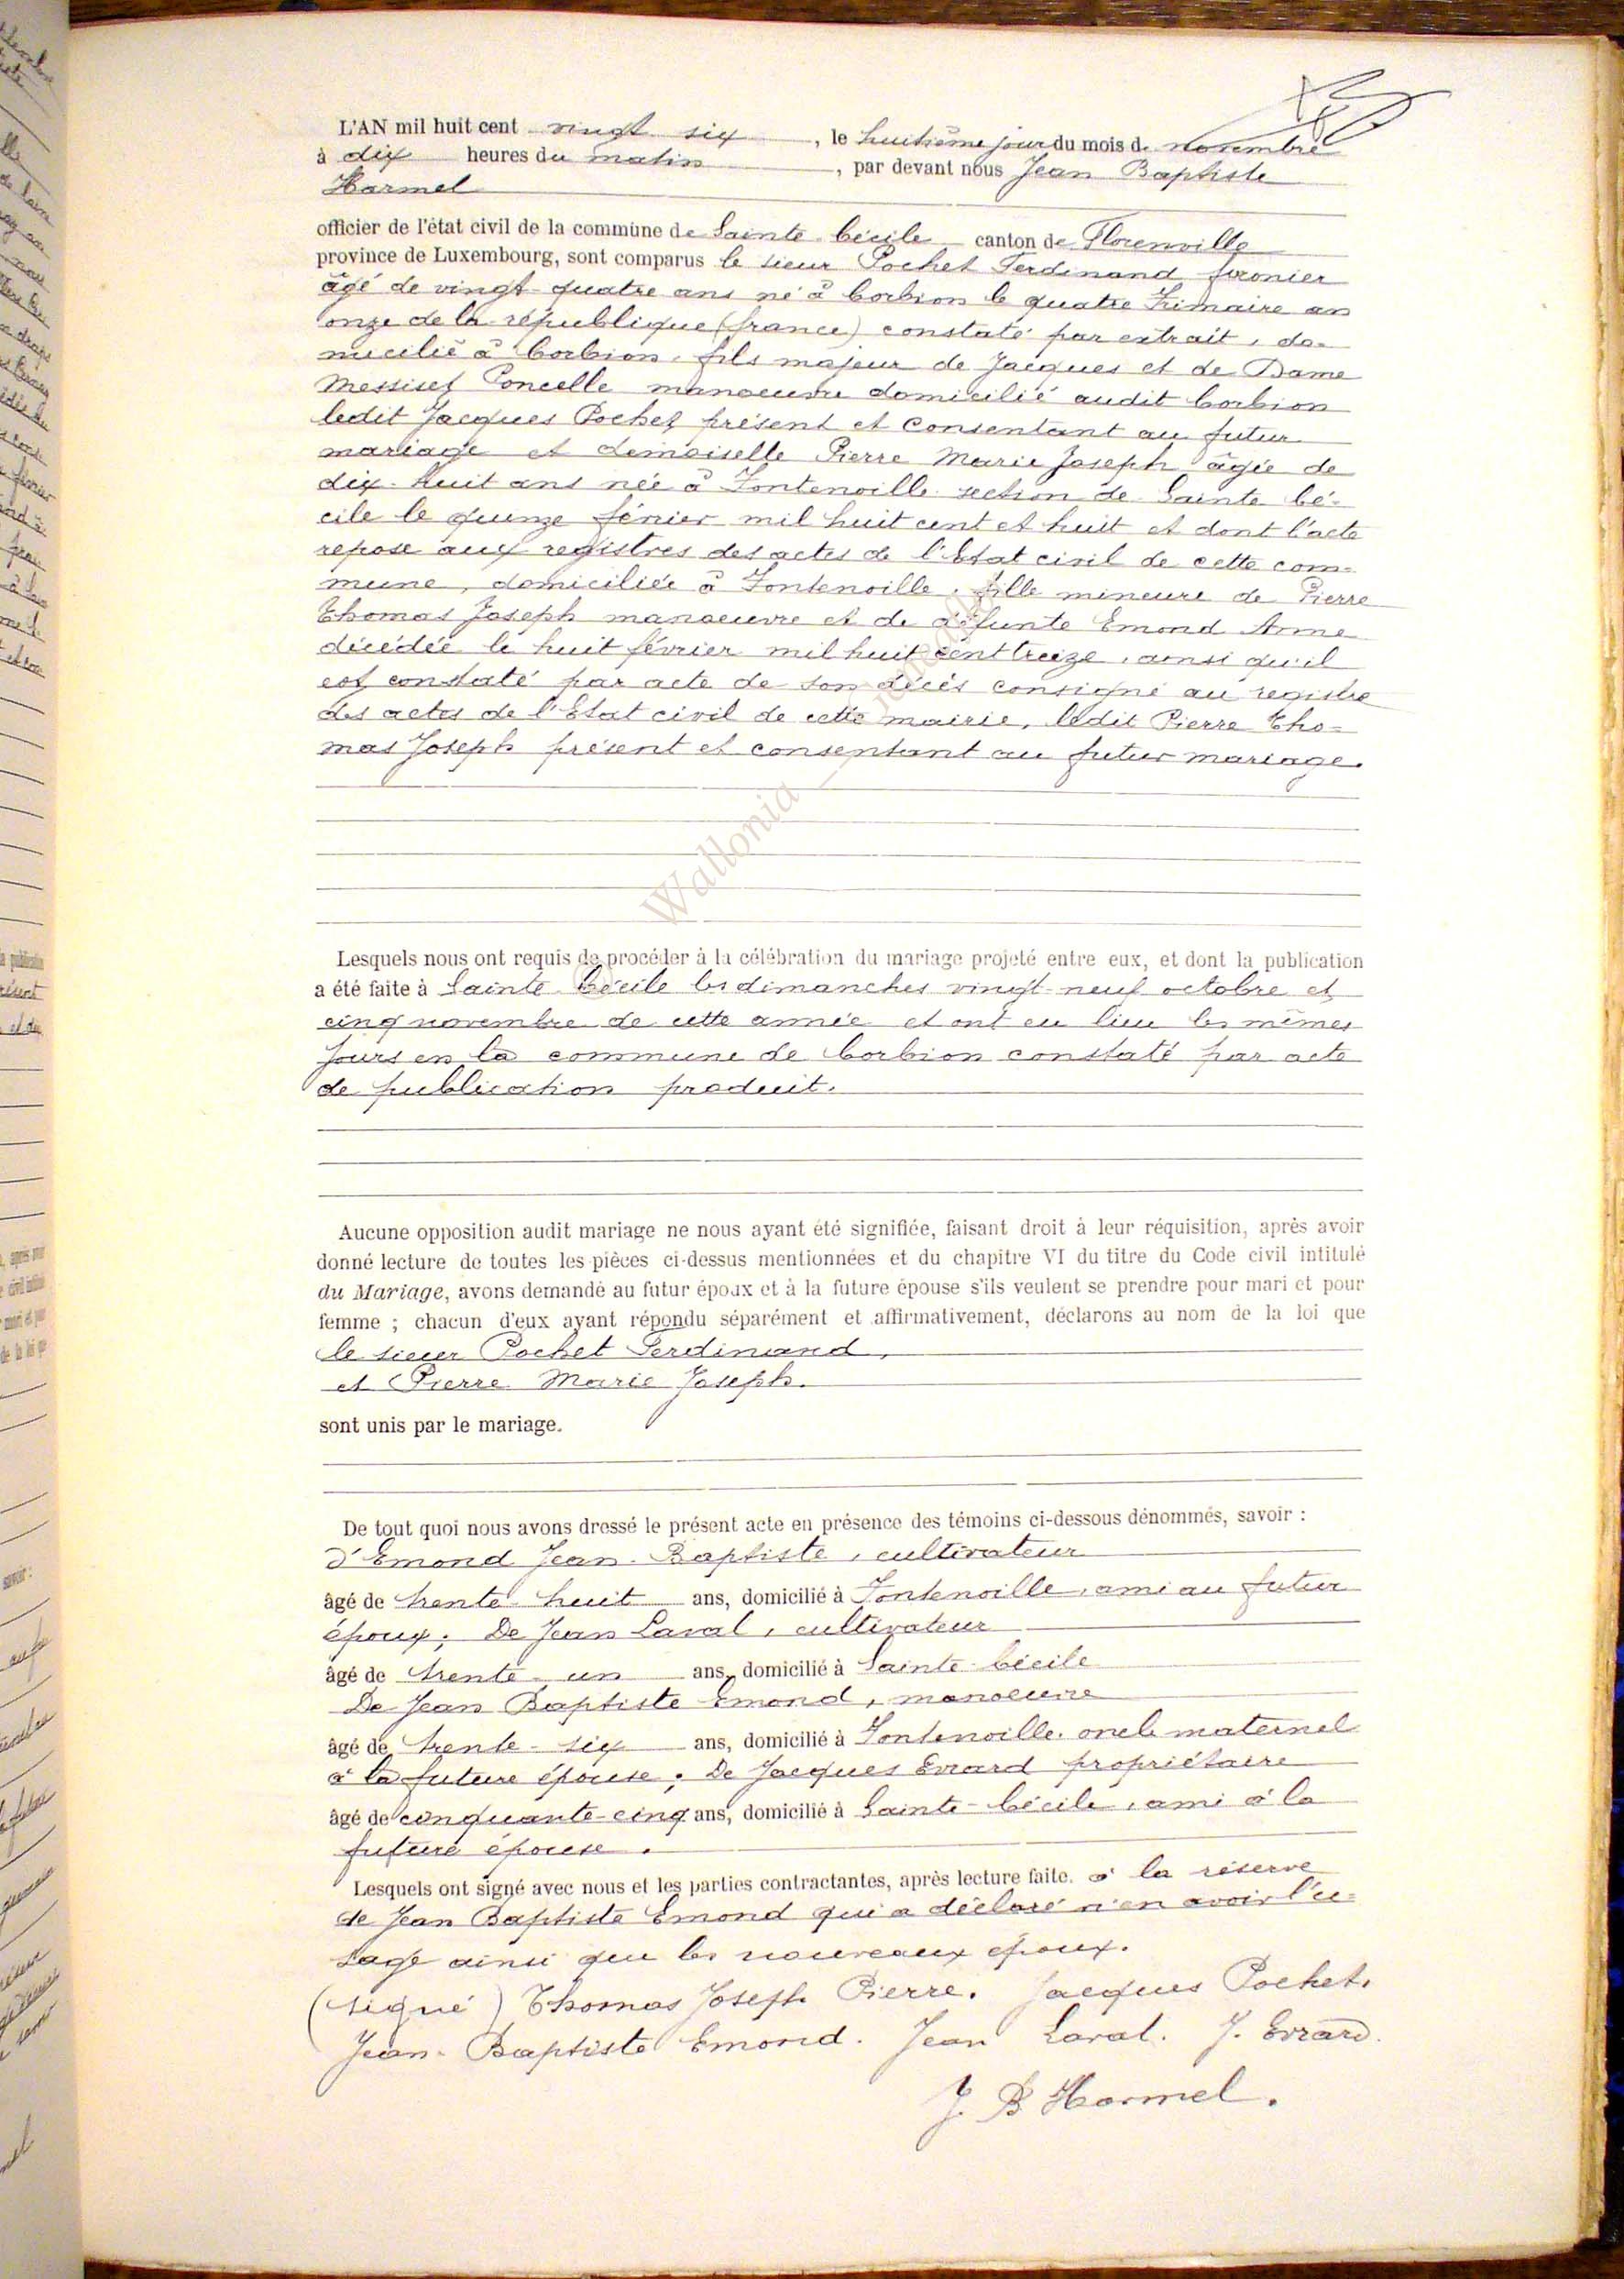 L'AN mil huit cent vingt six, le huitième jour du mois de novembre
à dix heures du matin, par devant nous Jean Baptiste
Harmel
officier de l'état civil de la commune de Sainte-Cécile canton de Florenville
province de Luxembourg, sont comparus le sieur Pochet Ferdinand
âgé de vingt-quatre ans né à Corbion le quatre Frimaire an
onze de la république (france) constaté par extrait, do-
micilié à Corbion, fils majeur de Jacques et de Dame
Poncelle manoeuvre domicilié audit Corbion
ledit Jacques Pochet présent et consentant au futur
mariage et demoiselle Pierre Marie Joseph âgée de
dix-huit ans née à Fontenoille section de Sainte Cé-
cile le quinze février mil huit cent et huit et dont l'acte
repose aux registres des actes de l'Etat civil de cette com-
mune, domiciliée à Fontenoille, fille mineure de Pierre
Thomas Joseph manoeuvre et de défunte Emond Anne
décédée le huit février mil huit cent treize, ainsi qu'il
est constaté par acte de son décès consigné au registre
des actes de l'Etat civil de cette mairie, ledit Pierre Tho-
mas Joseph présent et consentant au futur mariage.
Wallonia
Lesquels nous ont requis de procéder à la célébration du mariage projeté entre eux, et dont la publication
a été faite à Sainte-Cécile les dimanches vingt-neuf octobre et
cinq novembre de cette année et ont eu lieu les mêmes
jours en la commune de Corbion constaté par acte
de publication produit.
Aucune opposition audit mariage ne nous ayant été signifiée, faisant droit à leur réquisition, après avoir
donné lecture de toutes les pièces ci-dessus mentionnées et du chapitre VI du titre du Code civil intitulé
du Mariage, avons demandé au futur époux et à la future épouse s'ils veulent se prendre pour mari et pour
femme ; chacun d'eux ayant répondu séparément et affirmativement, déclarons au nom de la loi que
le sieur Pochet Ferdinand,
et Pierre Marie Joseph.
sont unis par le mariage.
De tout quoi nous avons dressé le présent acte en présence des témoins ci-dessous dénommés, savoir :
d'Emond Jean-Baptiste, cultivateur
âgé de trente-huit ans, domicilié à Fontenoille, ami au futur
époux; De Jean Laval, cultivateur
âgé de trente-un ans, domicilié à Sainte-Cécile
De Jean Baptiste Emond, manoeuvre
âgé de trente-six ans, domicilié à Fontenoille. oncle maternel
à la future épouse; De Jacques Evrard propriétaire
âgé de cinquante-cinq ans, domicilié à Sainte-Cécile, ami à la
future épouse.
Lesquels ont signé avec nous et les parties contractantes, après lecture faite. à la réserve
de Jean Baptiste Emond qui a déclaré n'en avoir l'u-
sage ainsi que les nouveaux époux.
(signé) Thomas Joseph Pierre. Jacques Pochet.
Jean-Baptiste Emond. Jean Laval. J. Evrard.
J. B Harmel.